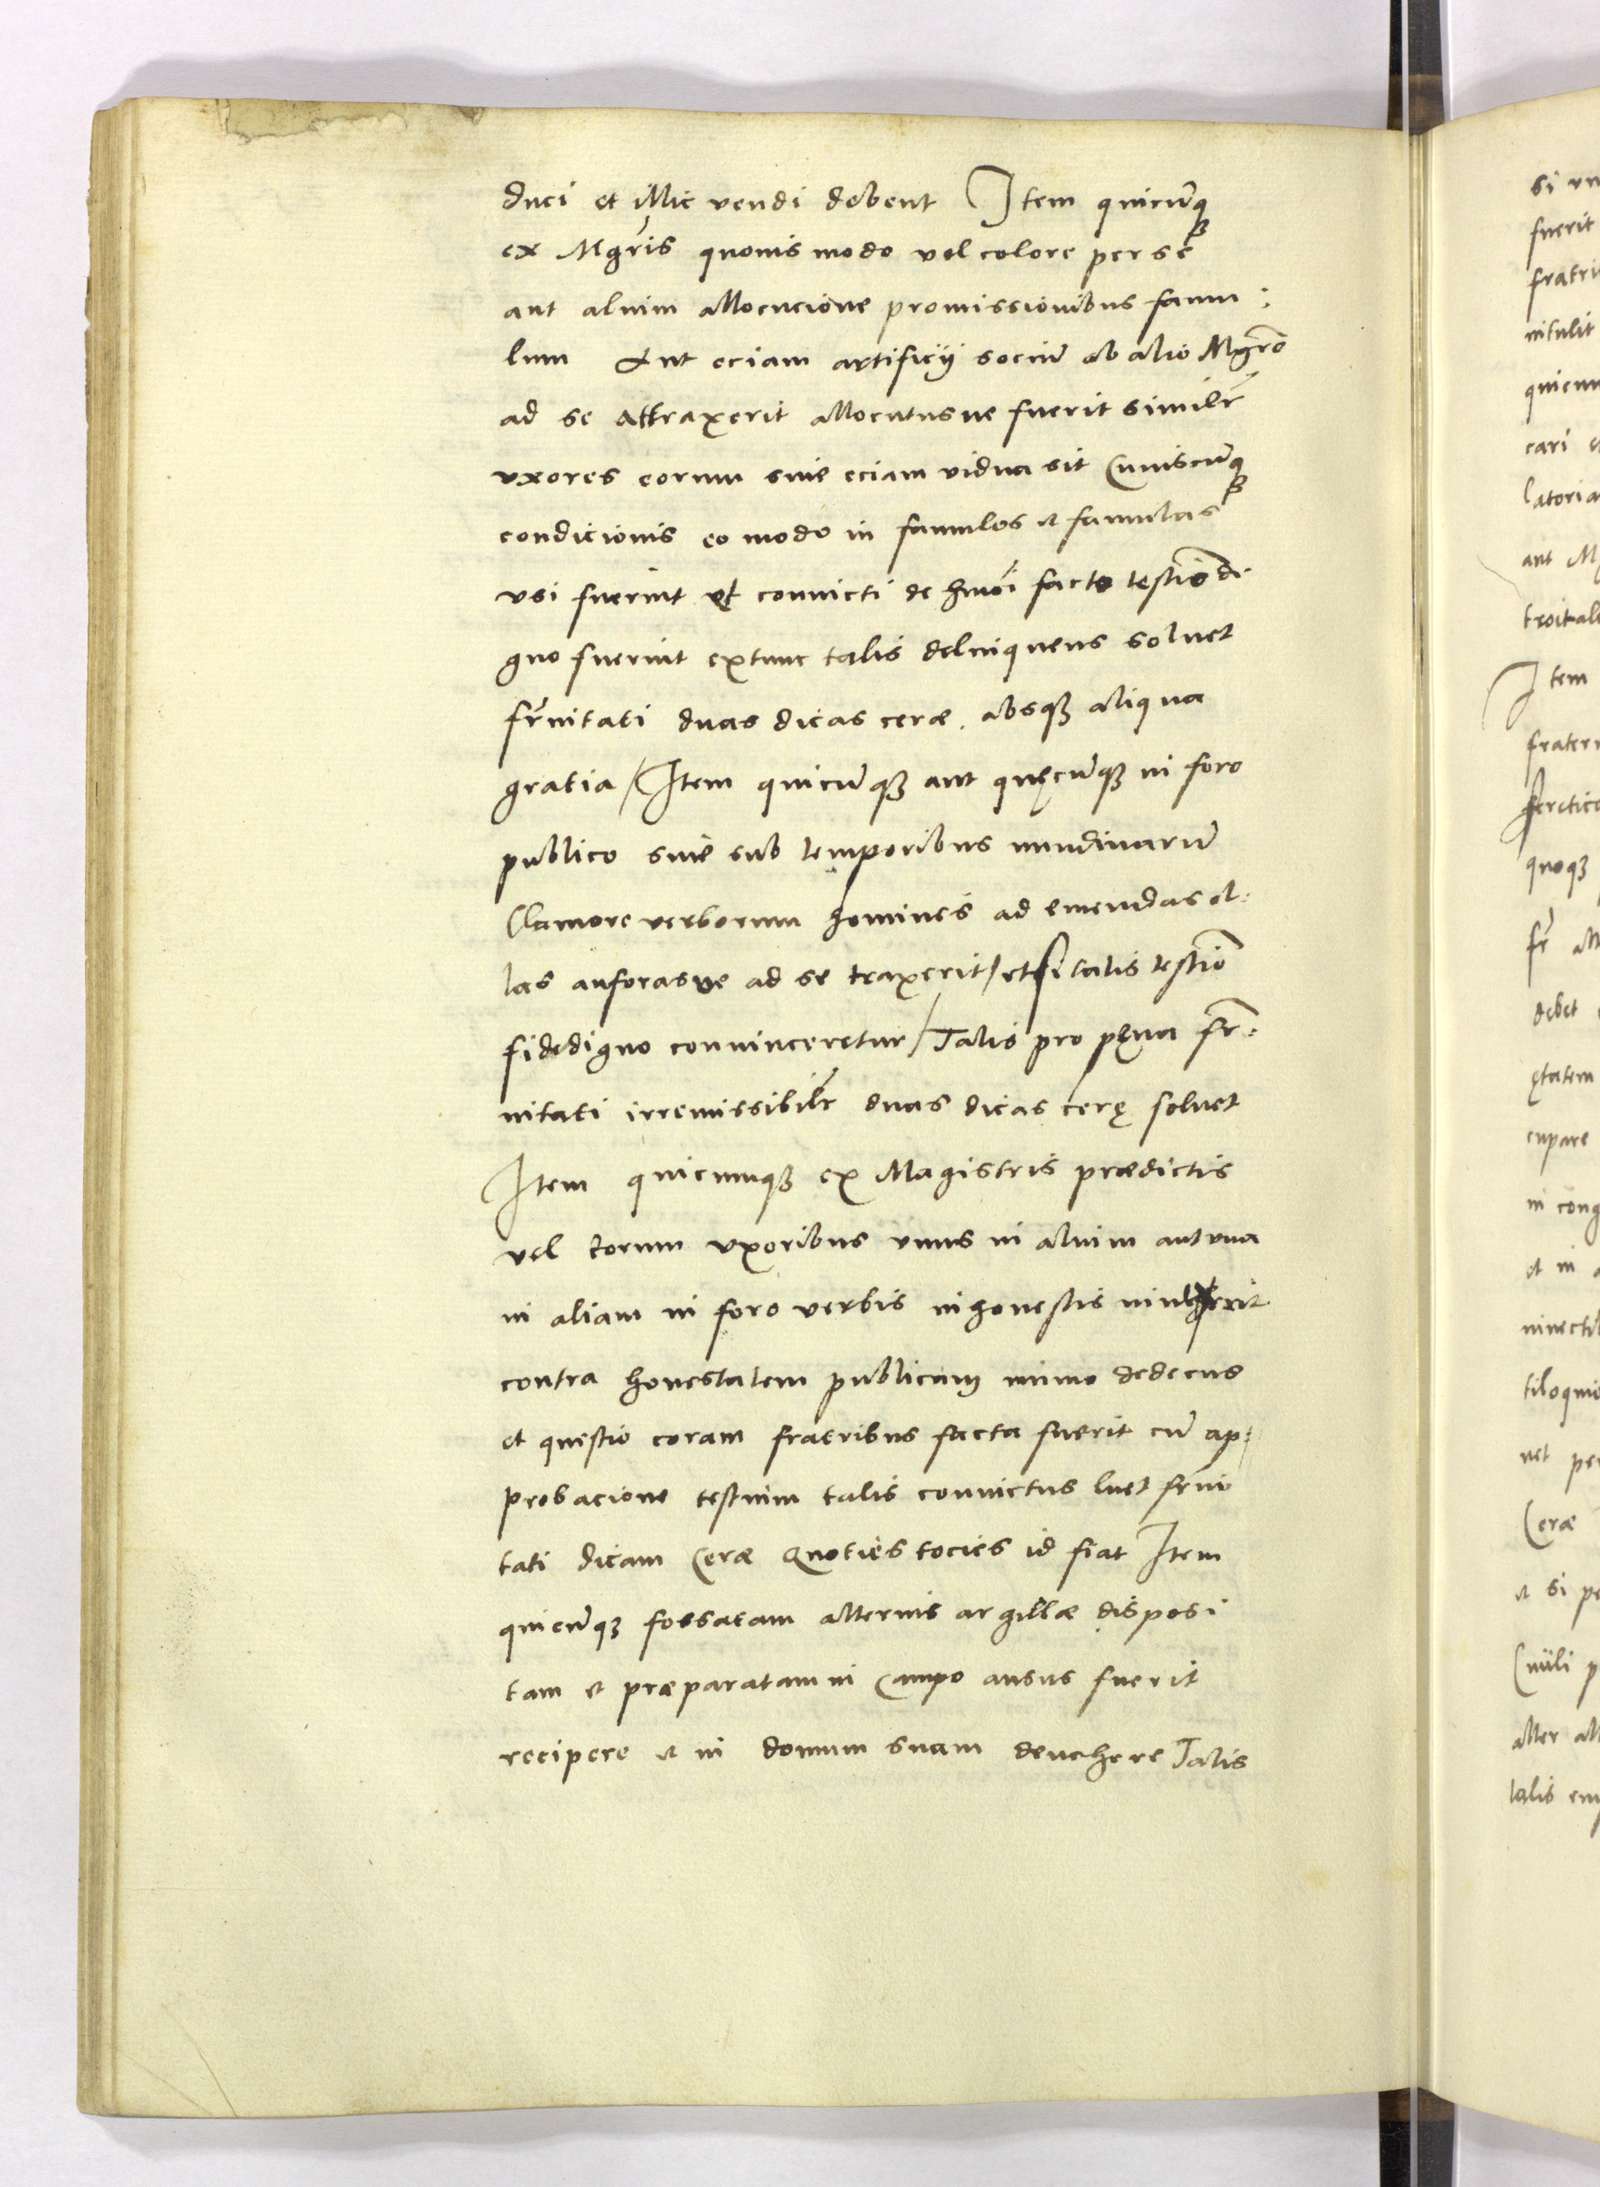 duci et illic vendi debent Item quicunq
ex Mgris quouis modo vel colore per se
aut aluim allocucione promissionibus famu:
lum Aut eciam artificij sociu ab alio Mgro
ad se attraxerit allocutusue fuerit similr
vxores eorum siue eciam vidua sit Cuiuscunq
condicionis eo modo in famulos et famulas
vsi fuerint et conuicti de hmoi facto testio di
gno fuerint extunc talis delinquens soluet
frnitati duas dicas ceræ absq aliqua
gratia / Item quicunq aut quęcunq in foro
publico siue sub temporibus nundinaru
Clamore verborum homines ad emendas ol:
las anforasue ad se traxerit / et si talis testio
fidedigno conuinceretur / Talis pro pęna fr:
nitati irremissibilr duas dicas cerę soluet
Item quicunq ex Magistris prædictis
vel eorum vxoribus vnus in alium aut vna
in aliam in foro verbis inhonestis
contra honestatem publicam immo dedecus
et questio coram fratribus facta fuerit cu ap:
probacione testium talis conuictus luet frni
tati dicam Ceræ Quoties tocies id fiat Item
quicunq fossatam alterius argillæ disposi
tam et præparatam in Campo ausus fuerit
recipere et in domum suam deuehere Talis
si vn
fuerit
fratri
intulit
quicun
cari
latoria
aut M
troital
Item
frater
quoq
fr
debet
ętatem
cupare
in cong
et in
tiloqui
uet per
Ceræ
et si pe
Ciuili p
alter alt
talis em